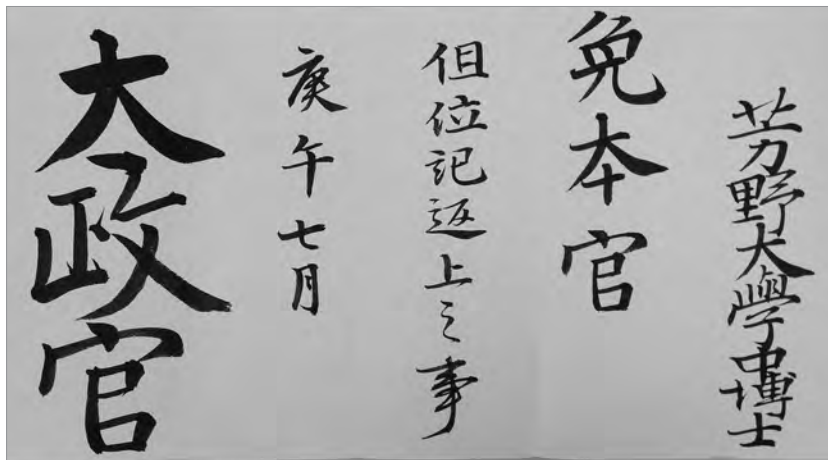 芳野大學中博士
免本官
但位記返上之事
庚午七月
大政官